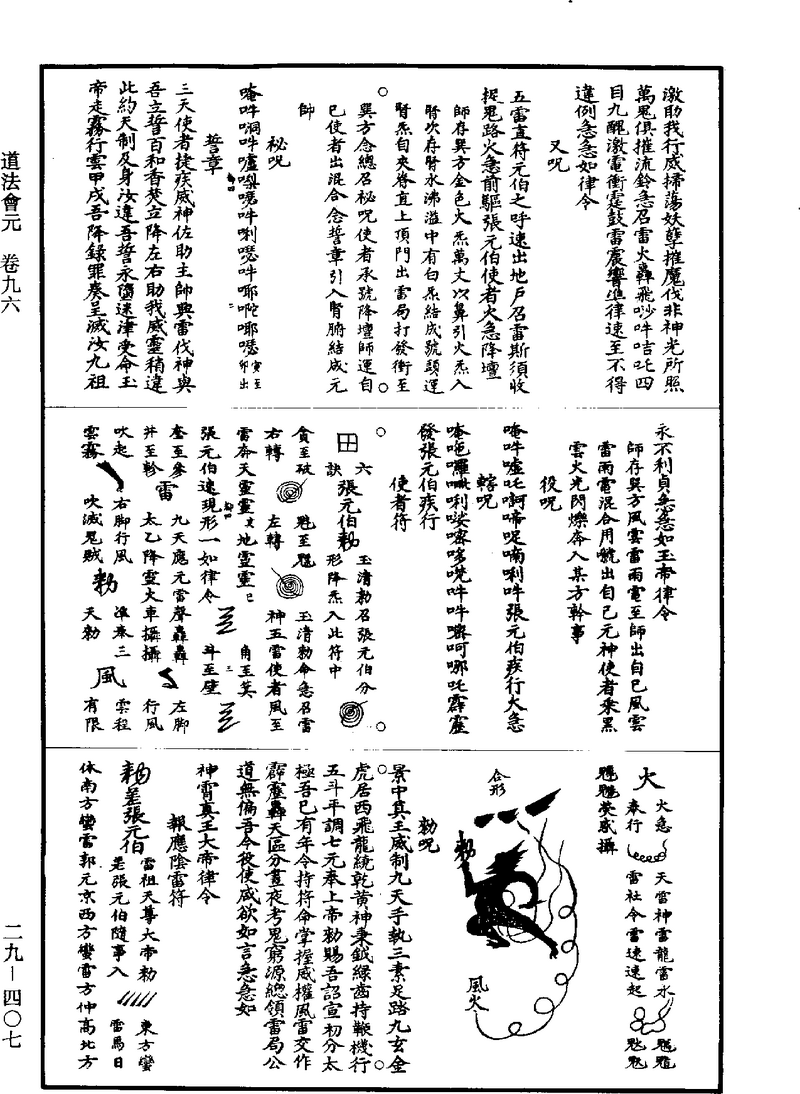 道法會元　卷九六
二九—四〇七
激助我行威掃蕩妖孽摧魔伐非神光所照
萬鬼俱摧流鈴急召雷火轟飛吵吽咭吒四
目九醜激電衝霆鼓雷震響準律速至不得
違例急急如律令
又呪
五雷直符元伯之呼速出地戶召雷斯須收
捉鬼路火急前驅張元伯使者火急降壇
師存巽方金色火炁萬丈以鼻引火炁入
腎次存腎水沸溢中有白炁結成號頭運
腎炁自夾脊直上頂門出雷局打發衝至
巽方念總召秘呪使者承號降壇師運自
己使者出混合念誓章引入腎腑結成元
帥
秘呪
唵吽㗢吽嚧㗚㗭吽唎㗭吽㖿㖿㗭寅至卯出
誓章
三天使者捷疾威神佐助主師興雷伐神與
吾立誓百和香焚立降左右助我威靈稍違
此約天制及身汝違吾誓永墮迷津受命玉
帝走霧行雲甲戌吾降錄罪奏呈滅汝九祖
永不利貞急急如玉帝律令
師存巽方風雲雷雨電至師出自己風雲
雷雨電混合用號出自己元神使者乘黑
雲火光閃爍奔入某方幹事
役呪
唵吽嚧吒啼呢喃唎吽張元伯疾行大急
轄呪
發張元伯疾行
使者符
六　玉清勅召張元伯分
田　張元伯勅
訣　形降炁入此符中
貪至破　魁至魒　玉清勅命急召雷
右轉　左轉　神五雷使者風至
雷奔天靈靈地靈靈　角至箕
張元伯速現形一如律令　斗至壁
奎至參　九天應元雷聲轟轟　左脚
雷
井至軫　太乙降靈火車攝攝　行風
吹起　右脚行風　準奉三　雲程
勅　風
雲霧　吹滅鬼賊　天勅　有限
火　火急　天雷神雷龍雷水
奉行　雷社令雷速速起
熒惑攝
合形
勅
風火
勅呪
景中真王威制九天手執三素足路九玄金
虎居西飛龍統乾黃神秉鉞綠齒持鞭機行
五斗平調七元奉上帝勅賜吾詔宣初分太
極吾已有年令持符命掌握威權風雷交作
霹靂轟天區分晝夜考鬼窮源總領雷局公
道無偏吾今役使咸欲如言急急如
神霄真王大帝律令
報應陰雷符
勅差張元伯　雷祖天尊大帝勅　東方蠻
差張元伯隨事入　雷馬日
体南方蠻雷郭元京西方蠻雷方仲高北方